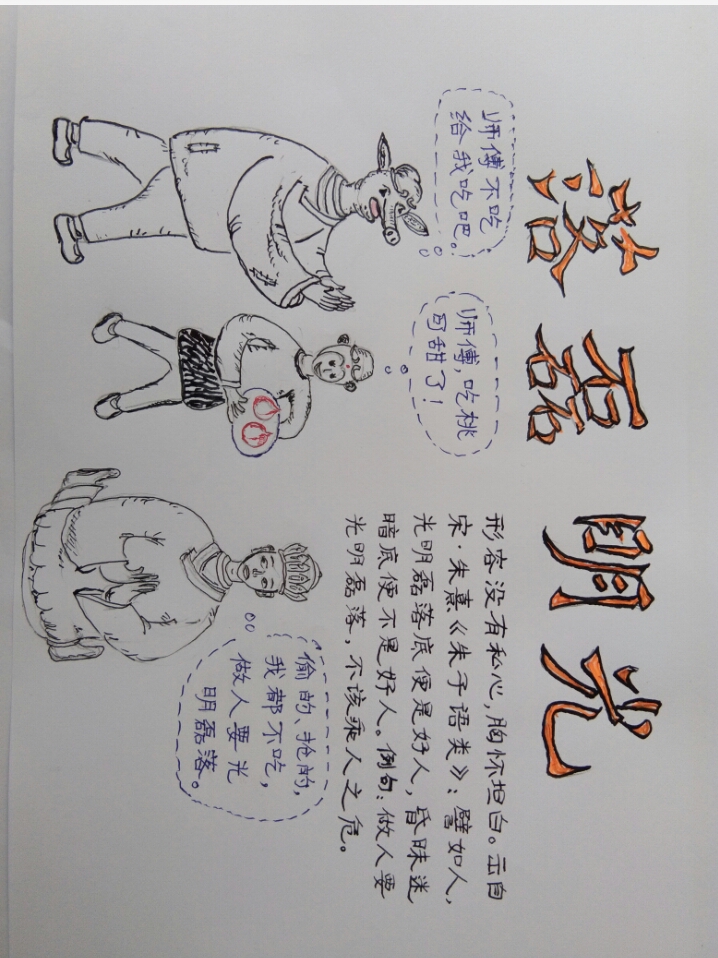 光明磊落
师傅不吃
给我吃吧。
师傅,吃桃
可甜了!
偷的、抢的,
我都不吃,
做人要光
明磊落。
形容没有私心,胸怀坦白。自
宋·朱熹《朱子语类》:譬如人,
光明磊落底便是好人,昏昧迷
暗底便不是好人。例句:做人要
光明磊落,不该乘人之危。